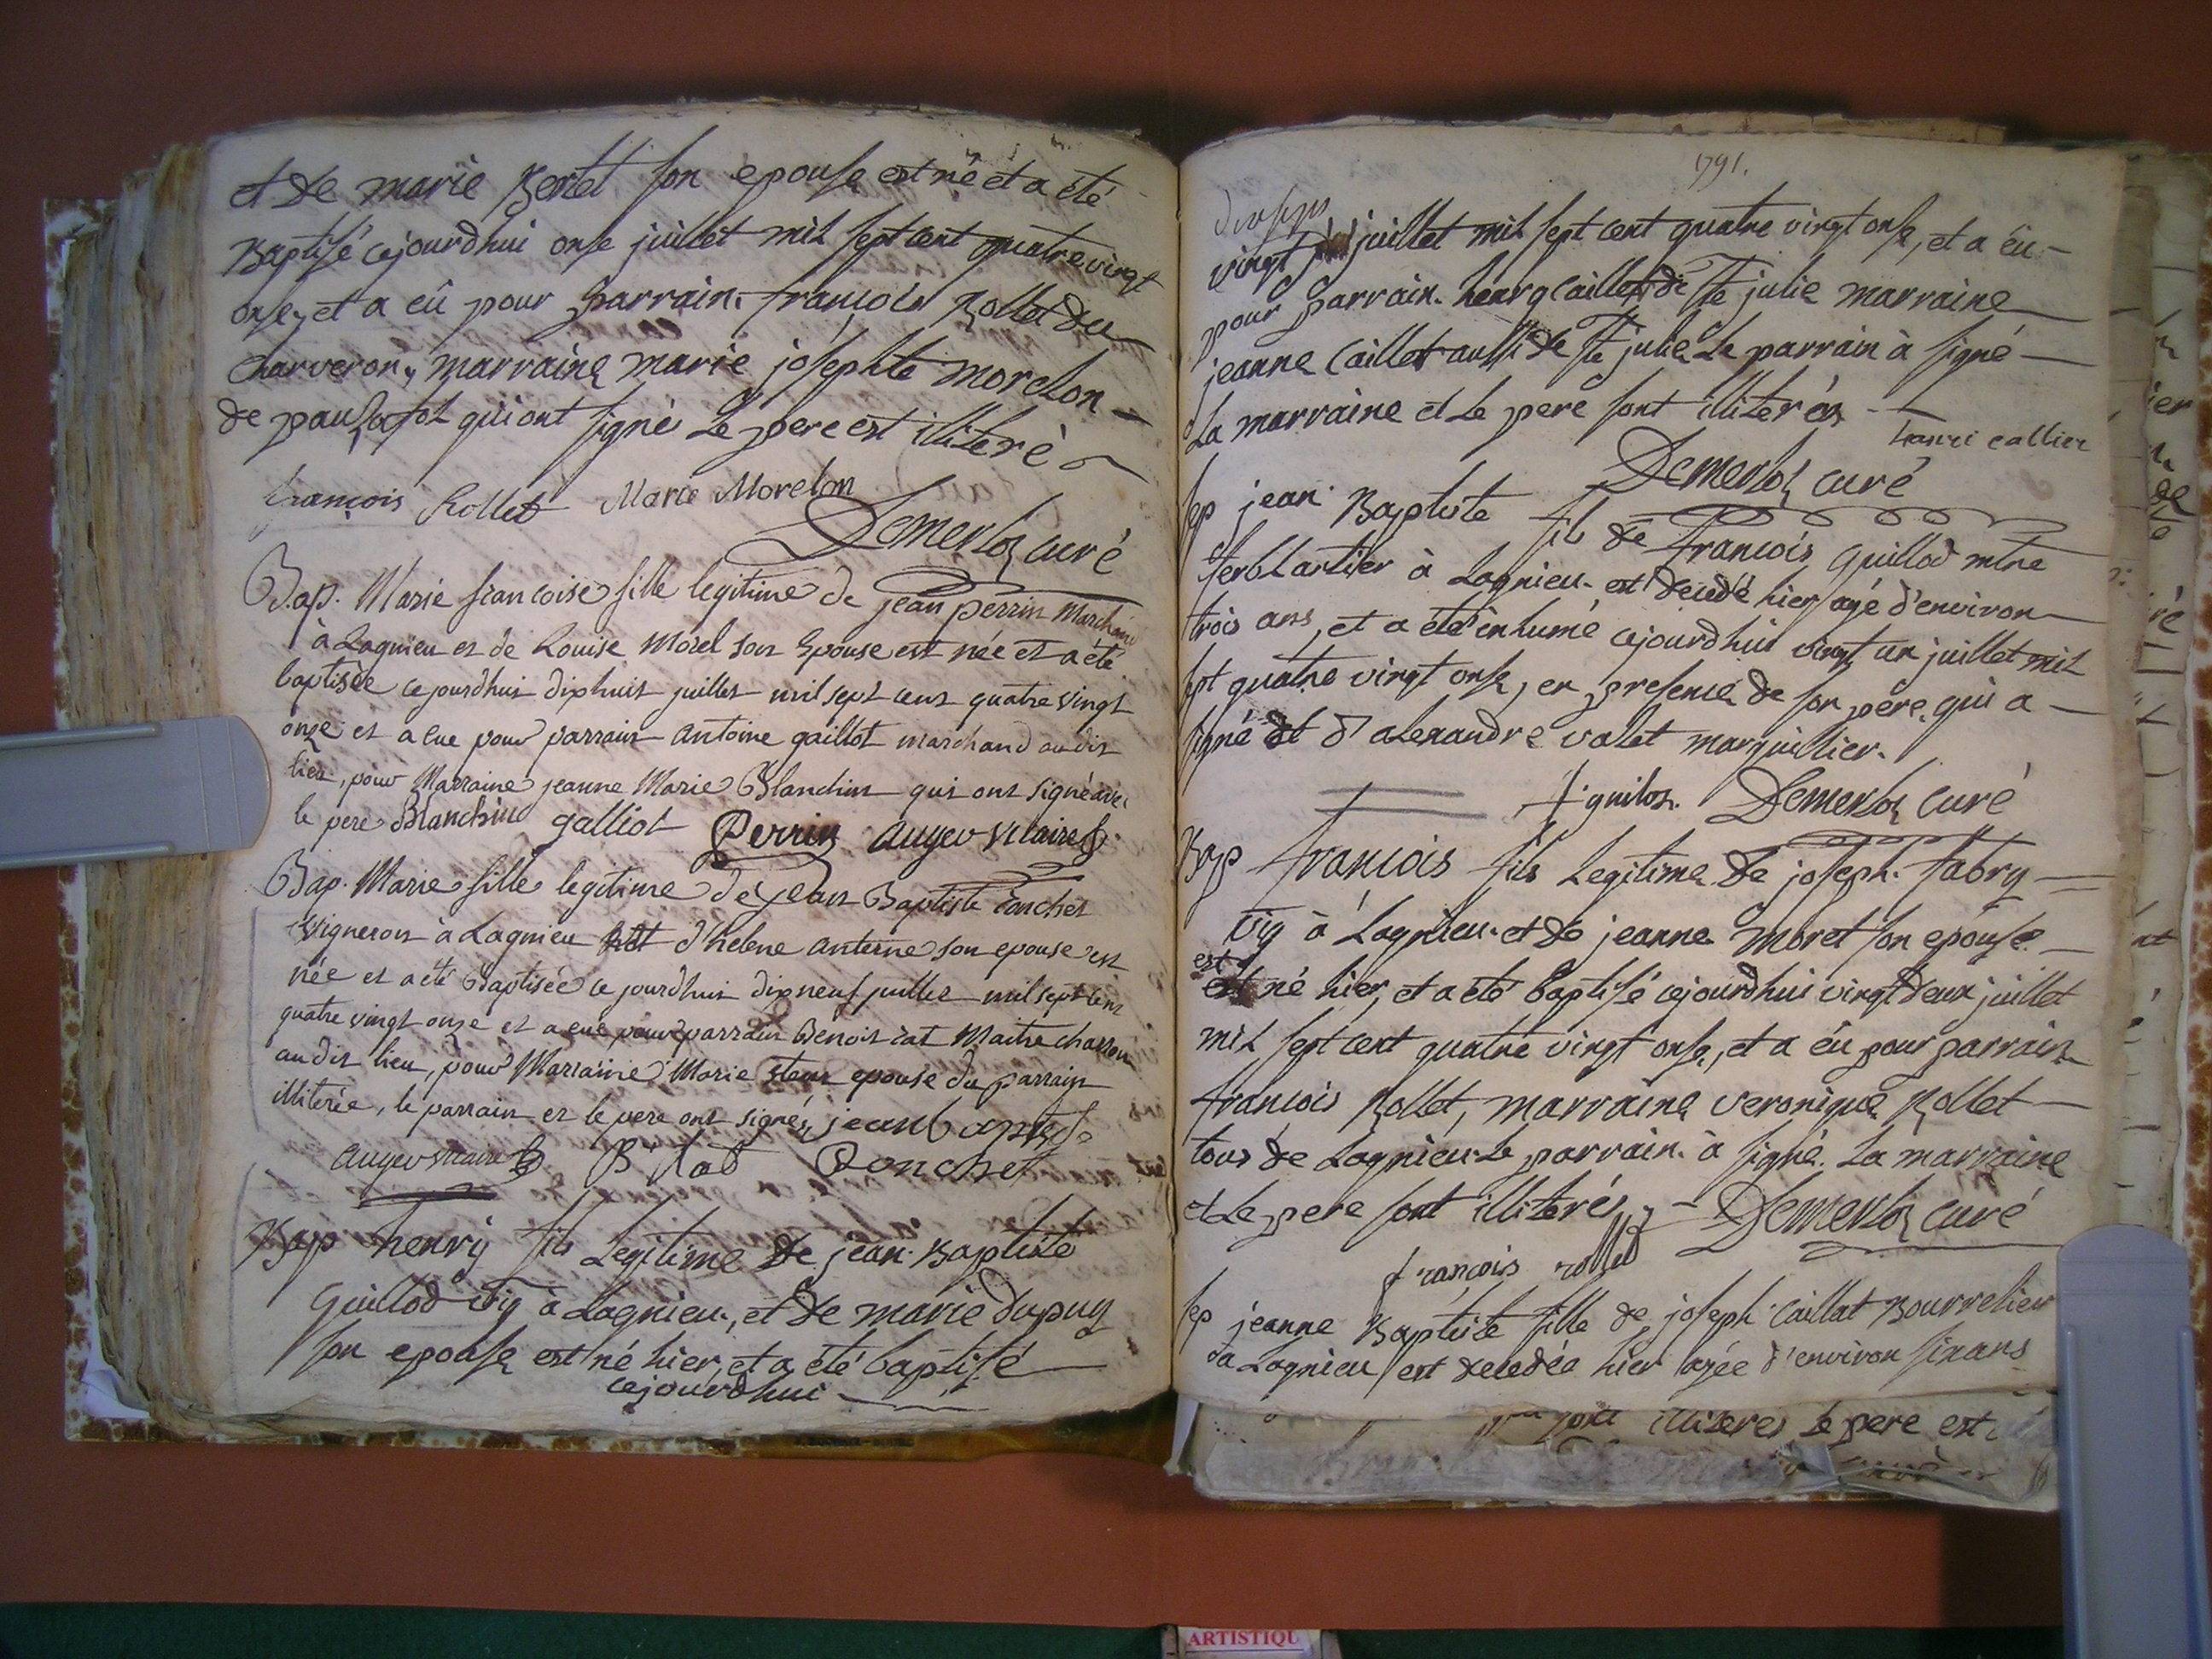 et de marie Bertet son epouse est né et a été
Baptisé cejourdhui onse juillet mil sept cent quatre vingt
onse, et a eû pour parrain françois Rollet du
charveron, marraine marie josephte morelon
de qui ont signé Le pere est illiteré
françois Rollet Marie Morelon
Demerloz curé
Bap. Marie francoise fille legitime de jean perrin Marchand
à Lagnieu et de Louise Morel son Epouse est née et a été
baptisée ce jourdhui dixhuit juillet mil sept cent quatre vingt
onze et a eue pour parrain Antoine gaillot marchand audit
lieu, pour Marraine jeanne Marie Blanchin qui ont signé avec
le pere Blanchin galliot Perrin auger vicaire
Bap. Marie fille legitime de jean Baptiste Ponchet
vigneron à Lagnieu et d'helene anterne son epouse est
née et a été Baptisée ce jourdhui dixneuf juillet mil sept cent
quatre vingt onze et a eue pour parrain Benoit Maitre charron
audit lieu, pour Marraine Marie epouse du parrain
illiterée, le parrain et le pere ont signés, jean baptiste
auger vicaire B Ponchet
Bap henry fils Legitime de jean Baptiste
Guillod vig à Lagnieu, et de marie dupuy
son epouse est né hier, et a été baptisé
cejourdhui
1791.
vingt juillet mil sept cent quatre vingt onse, et a eû
pour parrain henry caillet de Ste julie marraine
jeanne Caillet aussi de Ste julie Le parrain à signé
La marraine et Le pere sont illiterés
henri callier
Demerloz curé
sep jean Baptiste fils de françois Guillod mtre
ferblantier à Lagnieu est decedé hier agé d'environ
trois ans, et a été inhumé cejourdhui vingt un juillet mil
sept quatre vingt onse, en presence de son pere, qui a
signé et d'alexandre valet marguillier.
f. guilon. Demerloz curé
Bap francois fils Legitime de joseph fabry
vig à Lagnieu et de jeanne Moret son epouse
est
est né hier, et a été baptisé cejourdhui vingt deux juillet
mil sept cent quatre vingt onse, et a eû pour parrain
francois Rollet, marraine veronique Rollet
tous de Lagnieu Le parrain à signé. La marraine
et Le pere sont illiterés, Demerloz curé
françois rollet
sep jeanne Baptiste fille de joseph Caillat Bourrelier
à Lagnieu est decedée hier agée d'environ six ans
illiteres Le pere est
ARTISTIQU